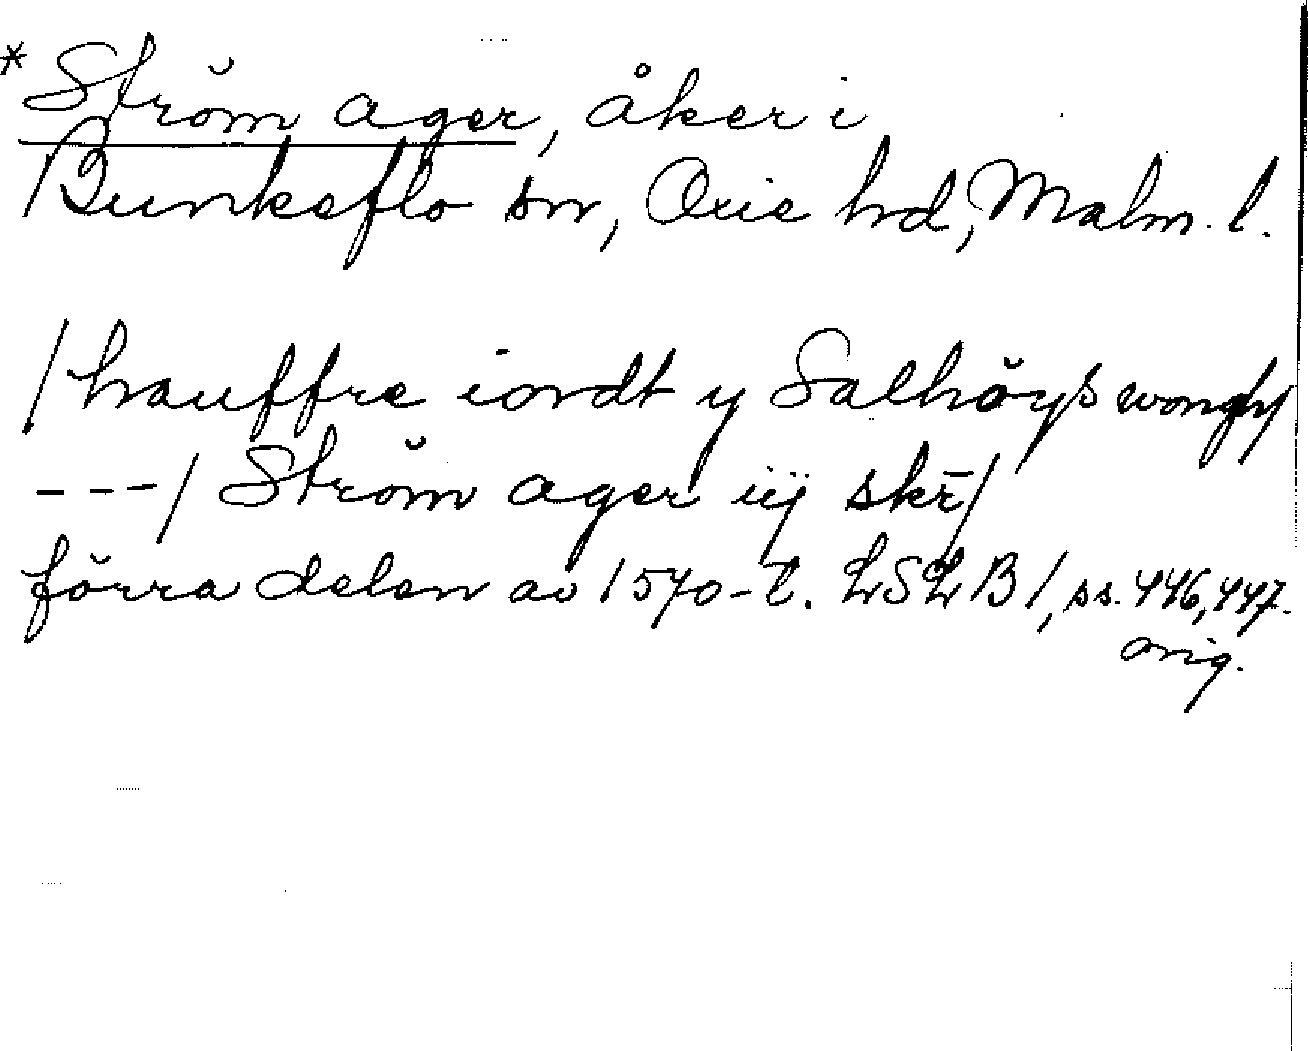 * Ström ager, åker i
Bunkeflo sn, Oxie hd, Malm. l.
/ hauffre iordt y Salhöys wongh/
---/ Ström ager iij skr̄/
förra delen av 1570-t. LSLB 1, ss. 446, 447.
orig.